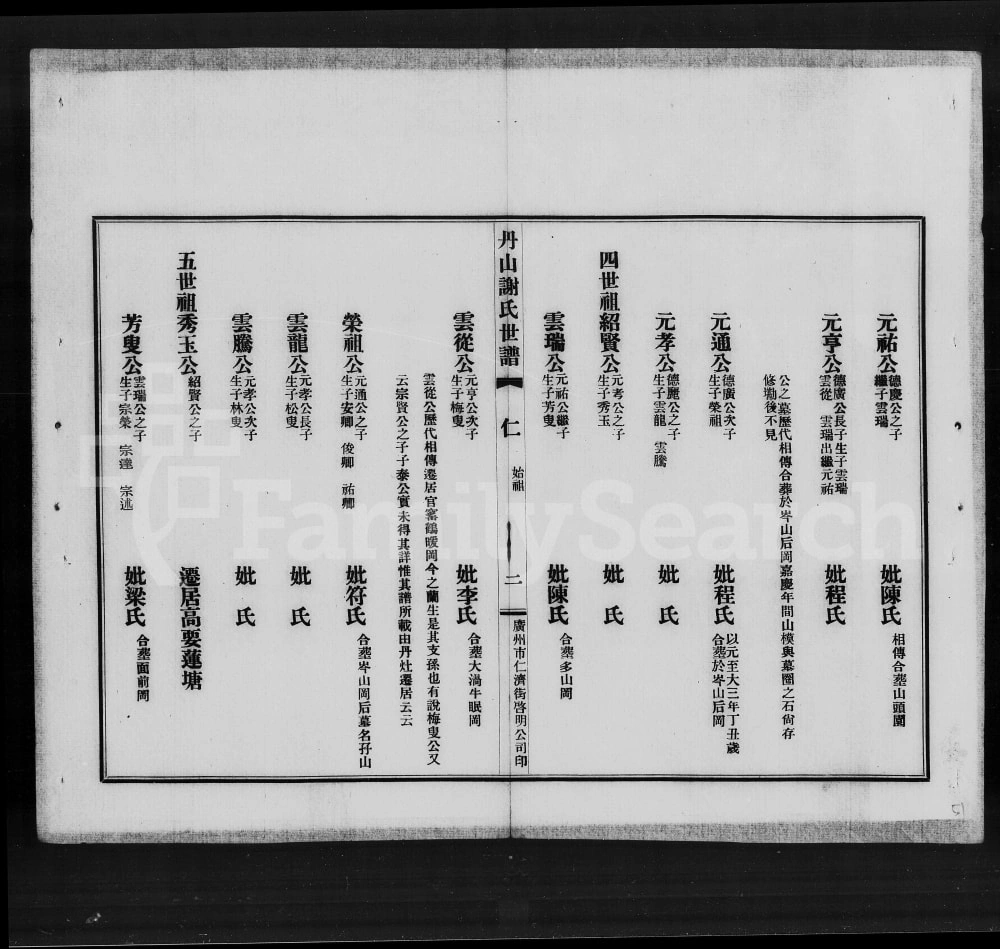 元祐公 德慶公之子 繼子雲瑞 妣陳氏 相傳合塟山頭園
元亨公 德廣公長子生子雲瑞 雲從 雲瑞出繼元祐 妣程氏
公之墓歷代相傳合葬於岑山后岡嘉慶年間山模與墓圈之石尙存
修勘後不見
元通公 德廣公次子 生子榮祖 妣程氏 以元至大三年丁丑歲 合塟於岑山后岡
元孝公 德麗公之子 生子雲龍 雲騰 妣 氏
四世祖紹賢公 元考公之子 生子秀玉 妣 氏
雲瑞公 元祐公繼子 生子芳叟 妣陳氏 合塟多山岡
丹山謝氏世譜 仁 始祖 二 廣州市仁濟街啓明公司印
雲從公 元亨公次子 生子梅叟 妣李氏 合塟大渦牛眠岡
雲從公歷代相傳遷居官窰鶴暖岡今之蘭生是其支孫也有說梅叟公又
云宗賢公之子子泰公實未得其詳惟其譜所載由丹灶遷居云云
榮祖公 元通公之子 生子安卿 俊卿 祐卿 妣符氏 合塟岑山岡后墓名孖山
雲龍公 元孝公長子 生子松叟 妣 氏
雲騰公 元孝公次子 生子林叟 妣 氏
五世祖秀玉公 紹賢公之子 遷居高要蓮塘
芳叟公 雲瑞公之子 生子宗榮 宗達 宗述 妣梁氏 合塟面前岡
FamilySearch